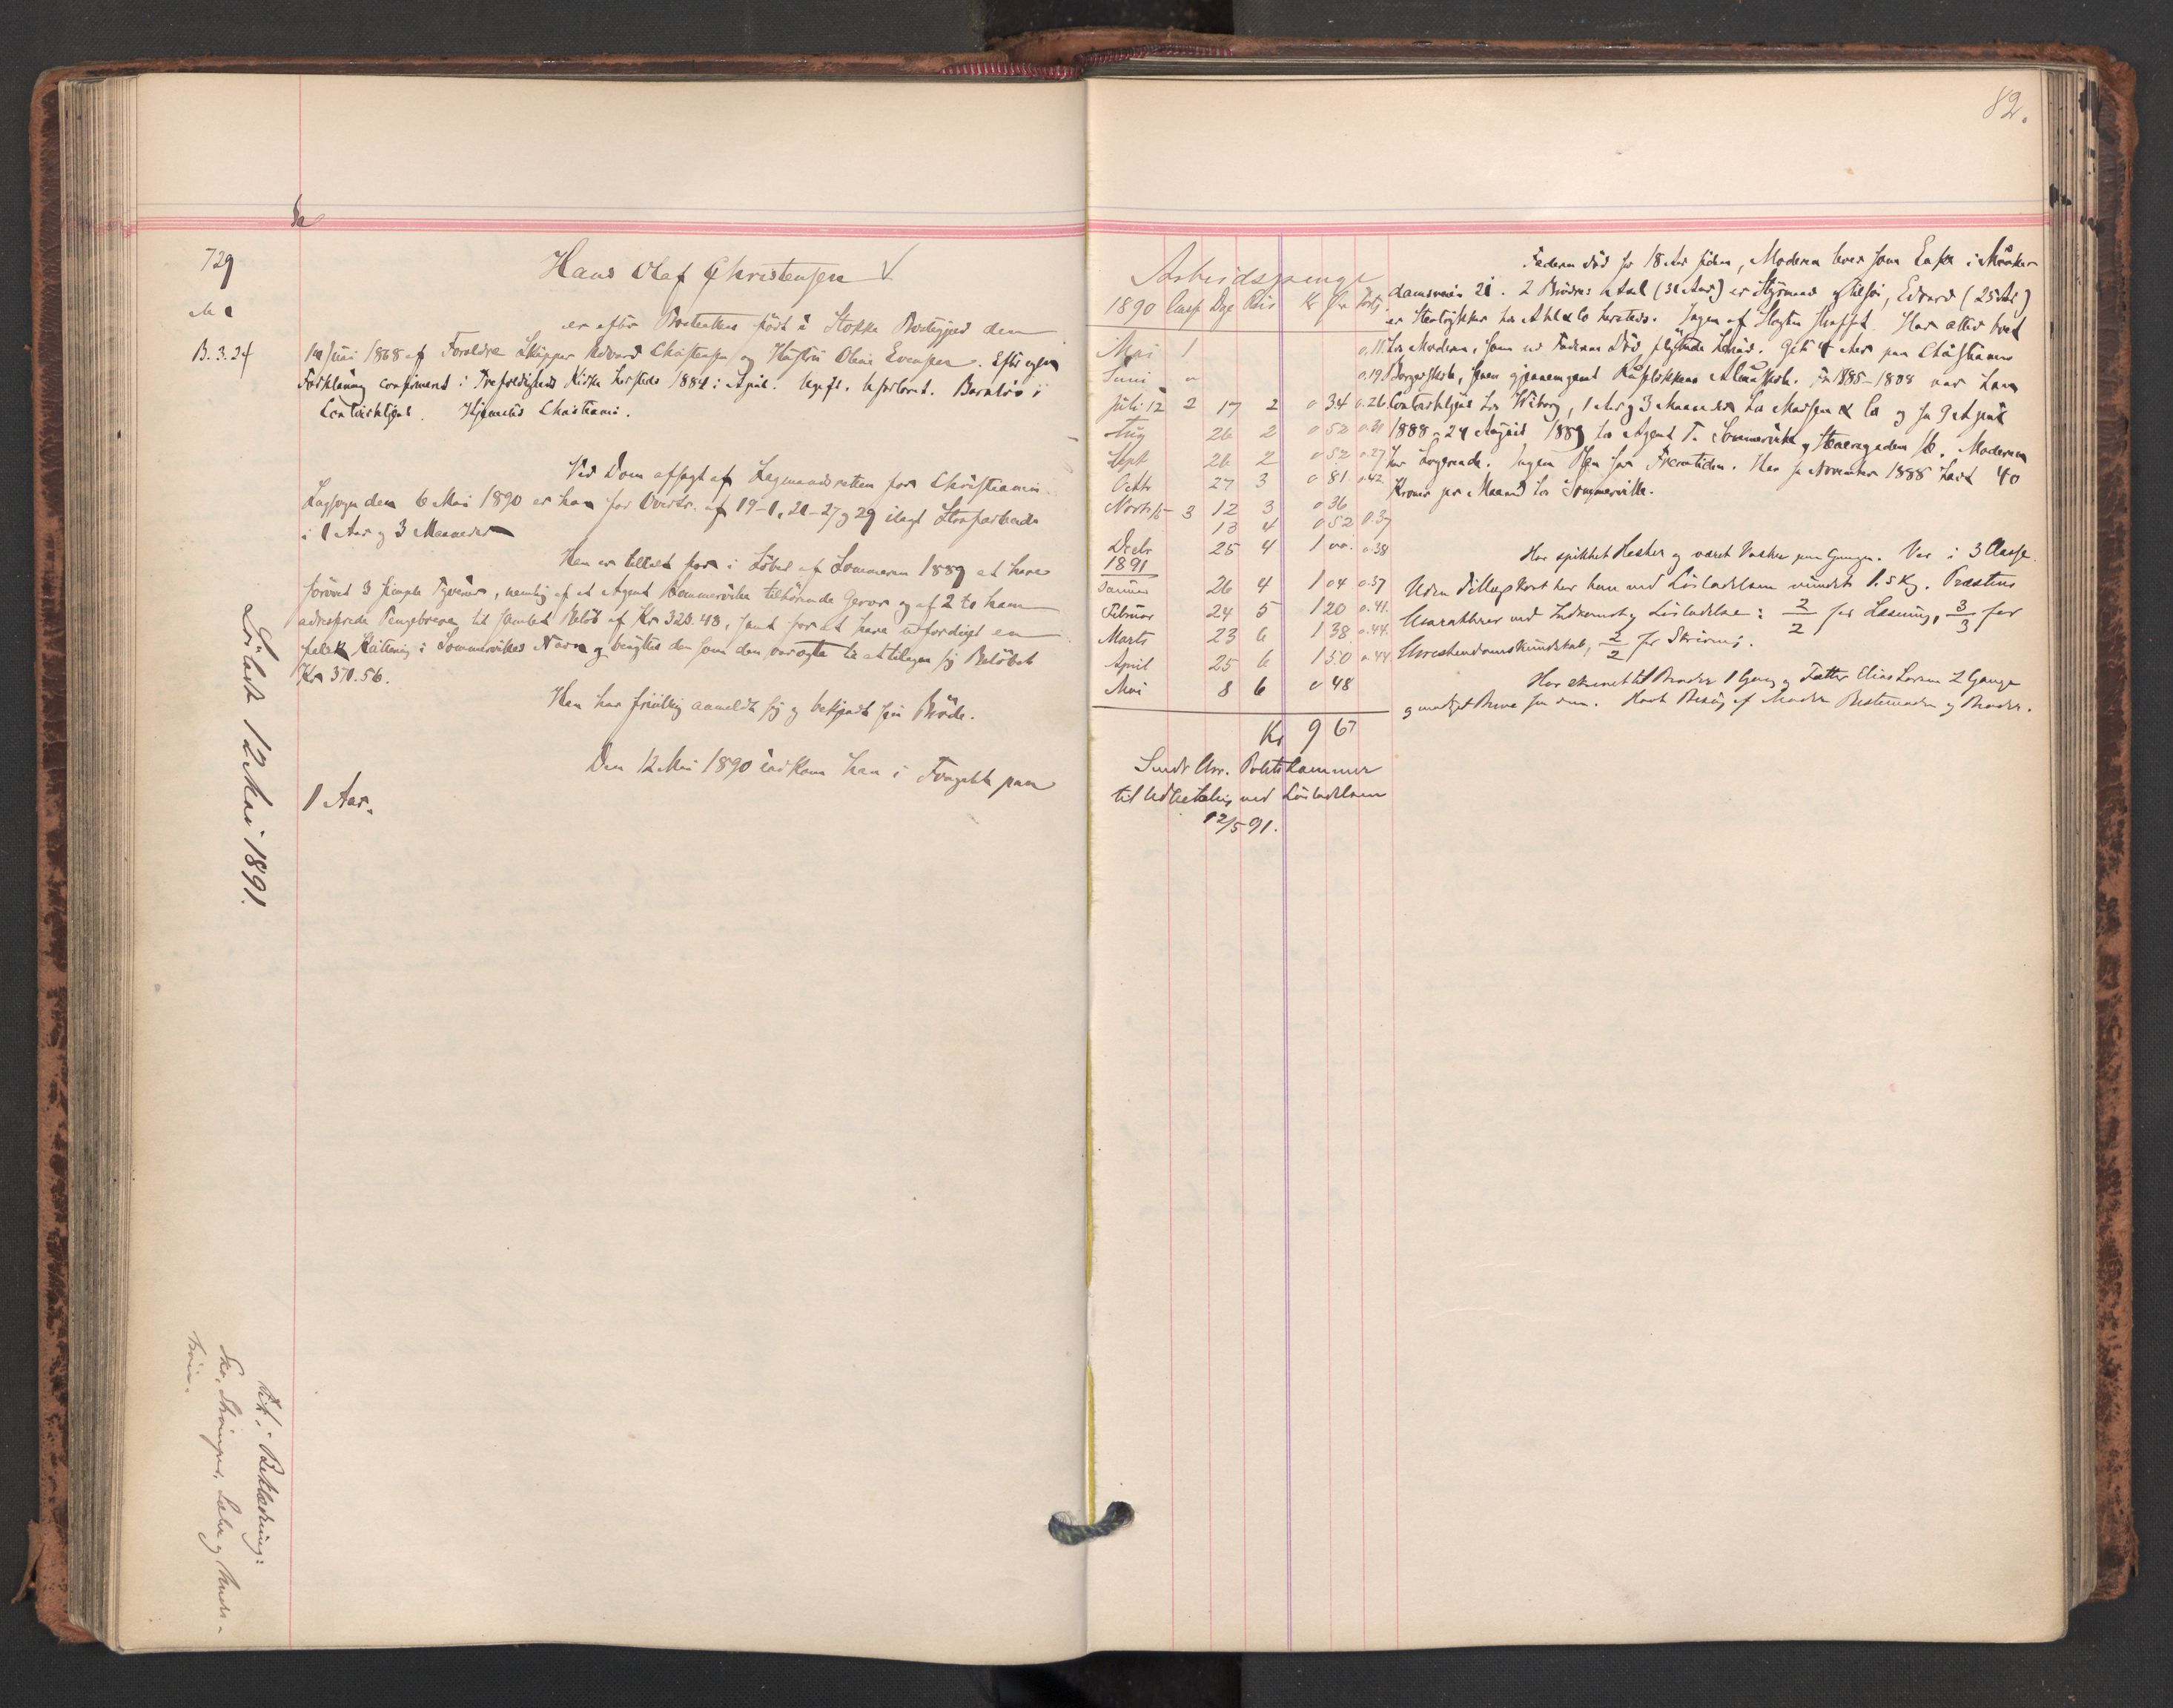 82.
729
B. 3. 24
Hans Olaf Christensen
er efter Protestken født i Stokke Prstgjeld den
14 Juni 1868 af Forældre Skipper Edvard Christensen og Hustru Oline Evensen. Efter egen
Forklaring confirmeret i Trefoldigheds Kirke hersteds 1884 i April. Ugift. Uforlovet. Barnløs.
Contoirbetjent. Hjemsted Christiania.
Ved Dom afsagt af Lagmandsretten for Christiania
Lagsogn den 6 Mai 1890 er han for Overtr. af 19-1, 21-27 og 29 ilagt Strafarbeide
i 1 Aar og 3 Maaneder
Han er tiltalt for i Løbet af Sommeren 1889 at have
forøvet 3 simple Tyverier, nemlig af et Agent Sommervilles tilhørende og af 2 to ham
adresserede Pengebreve til samlet Beløb af Kr 328.43, samt for at have udfærdiget en
falsk Kvittering i Sommervilles Navn og benyttet den som den var ægte til at tilegne sig Beløbet
Kr 370.56.
Han har frivillig anmeldt sig og bekjendt sin Brøde.
Den 12 Mai 1890 indkom han i Fængslet paa
1 Aar.
Løsladt 12 Mai 1891.
Utl. Beklædning:
Sko, Strømper,
Arbeidspenge
1890 Dage Kr Øre
Mai 1 0.11
Juni " 0.19
Juli 12 2 17 2 0 34 0.26
Aug 26 2 0 52 0.31
Sept 26 2 0 52 0.27
Octbr 27 3 0 81 0.42
Novbr 15 3 12 3 0 36
13 4 0 52 0.37
Decbr 25 4 1 00 0.38
1891
Januar 26 4 1 04 0.37
Februar 24 5 1 20 0.41
Marts 23 6 1 38 0.44
April 25 6 1 50 0.44
Mai 8 6 0 48
Kr 9 67
Sendt Chr. Politikammer
til Udbetaling ved Løsladelsen
12/5 91.
Faderen død for 18 Aar siden, Moderen lever som Enke i Mari-
damsveien 21. 2 Brødre: Axel (31 Aar) er Styrmand tilsjøs, Edvard (25 Aar)
er Stentrykker hos hersteds. Ingen af Slægten straffet. Har altid boet
hos Moderen, som ved Faderens Død flyttede herind. Gik 4 Aar paa Christiania
Borgerskole, senere gjennemgaaet Ruseløkkens Almueskole. Fra 1885-1888 var han
Contorbetjent hos Wiborg, 1 Aar og 3 Maaneder hos Madsen & Co og fra 9 April
1888-24 August 1889 hos Agent T. Sommerville, 16. Moderen
har Logerende. Ingen Plan for Fremtiden. Har fra November 1888 havt 40
Kroner pr Maaned hos Sommerville.
Har spikket Hesker og været Vasker paa Gangen. Var i 3 Classe.
Uden Tillægskost har han ved Løsladelsen mindsket 1.5 Kg. Præstens
Charakterer ved Indkomst og Løsladelse: 2/2 for Læsning, 3/3 for
Christendomskundskab, 2/2 for Skrivning.
Har skrevet til Broder 1 Gang og Fætter Elias Larsen 2 Gange
og modtaget Breve fra dem. Havt Besøg af Moder Bestemoder og Broder.